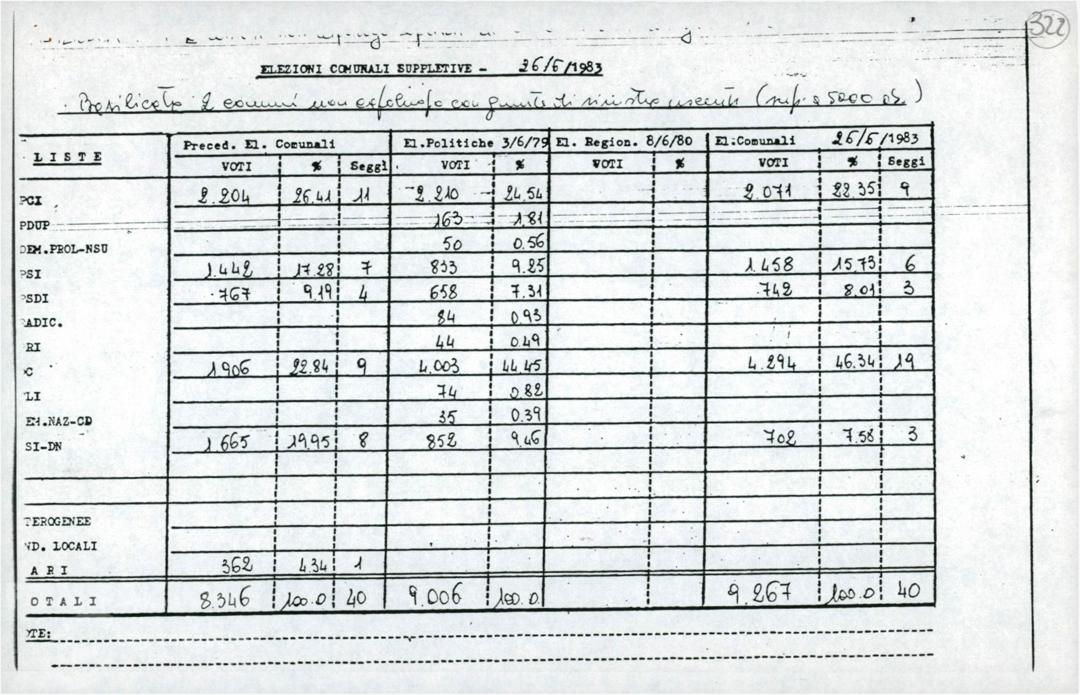 322
ELEZIONI COMUNALI SUPPLETIVE - 26/6/1983
Basilicata 2 comuni non capoluogo con giunte di sinistra uscenti (sup. a 5000 ab.)
LISTE Preced. El. Comunali El.Politiche 3/6/79 El. Region. 8/6/80 El:Comunali 26/6/1983
VOTI % Seggi VOTI % VOTI % VOTI % Seggi
PCI 2.204 26.41 11 2.210 24.54 2.071 22.35 9
PDUP 163 1.81
DEM.PROL-NSU 50 0.56
PSI 1.442 17.28 7 833 9.25 1.458 15,73 6
PSDI 767 9.19 4 658 7.31 742 8.01 3
ADIC. 84 0.93
RI 44 0.49
C 1906 22.84 9 4.003 44.45 4.294 46.34 19
LI 74 0.82
EM.NAZ-CD 35 0.39
SI-DN 1665 19.95 8 852 9.46 702 7.58 3
TEROGENEE
ND. LOCALI
ARI 362 4.34 1
OTALI 8.346 100.0 40 9.006 100.0 9.267 100.0 40
TE: